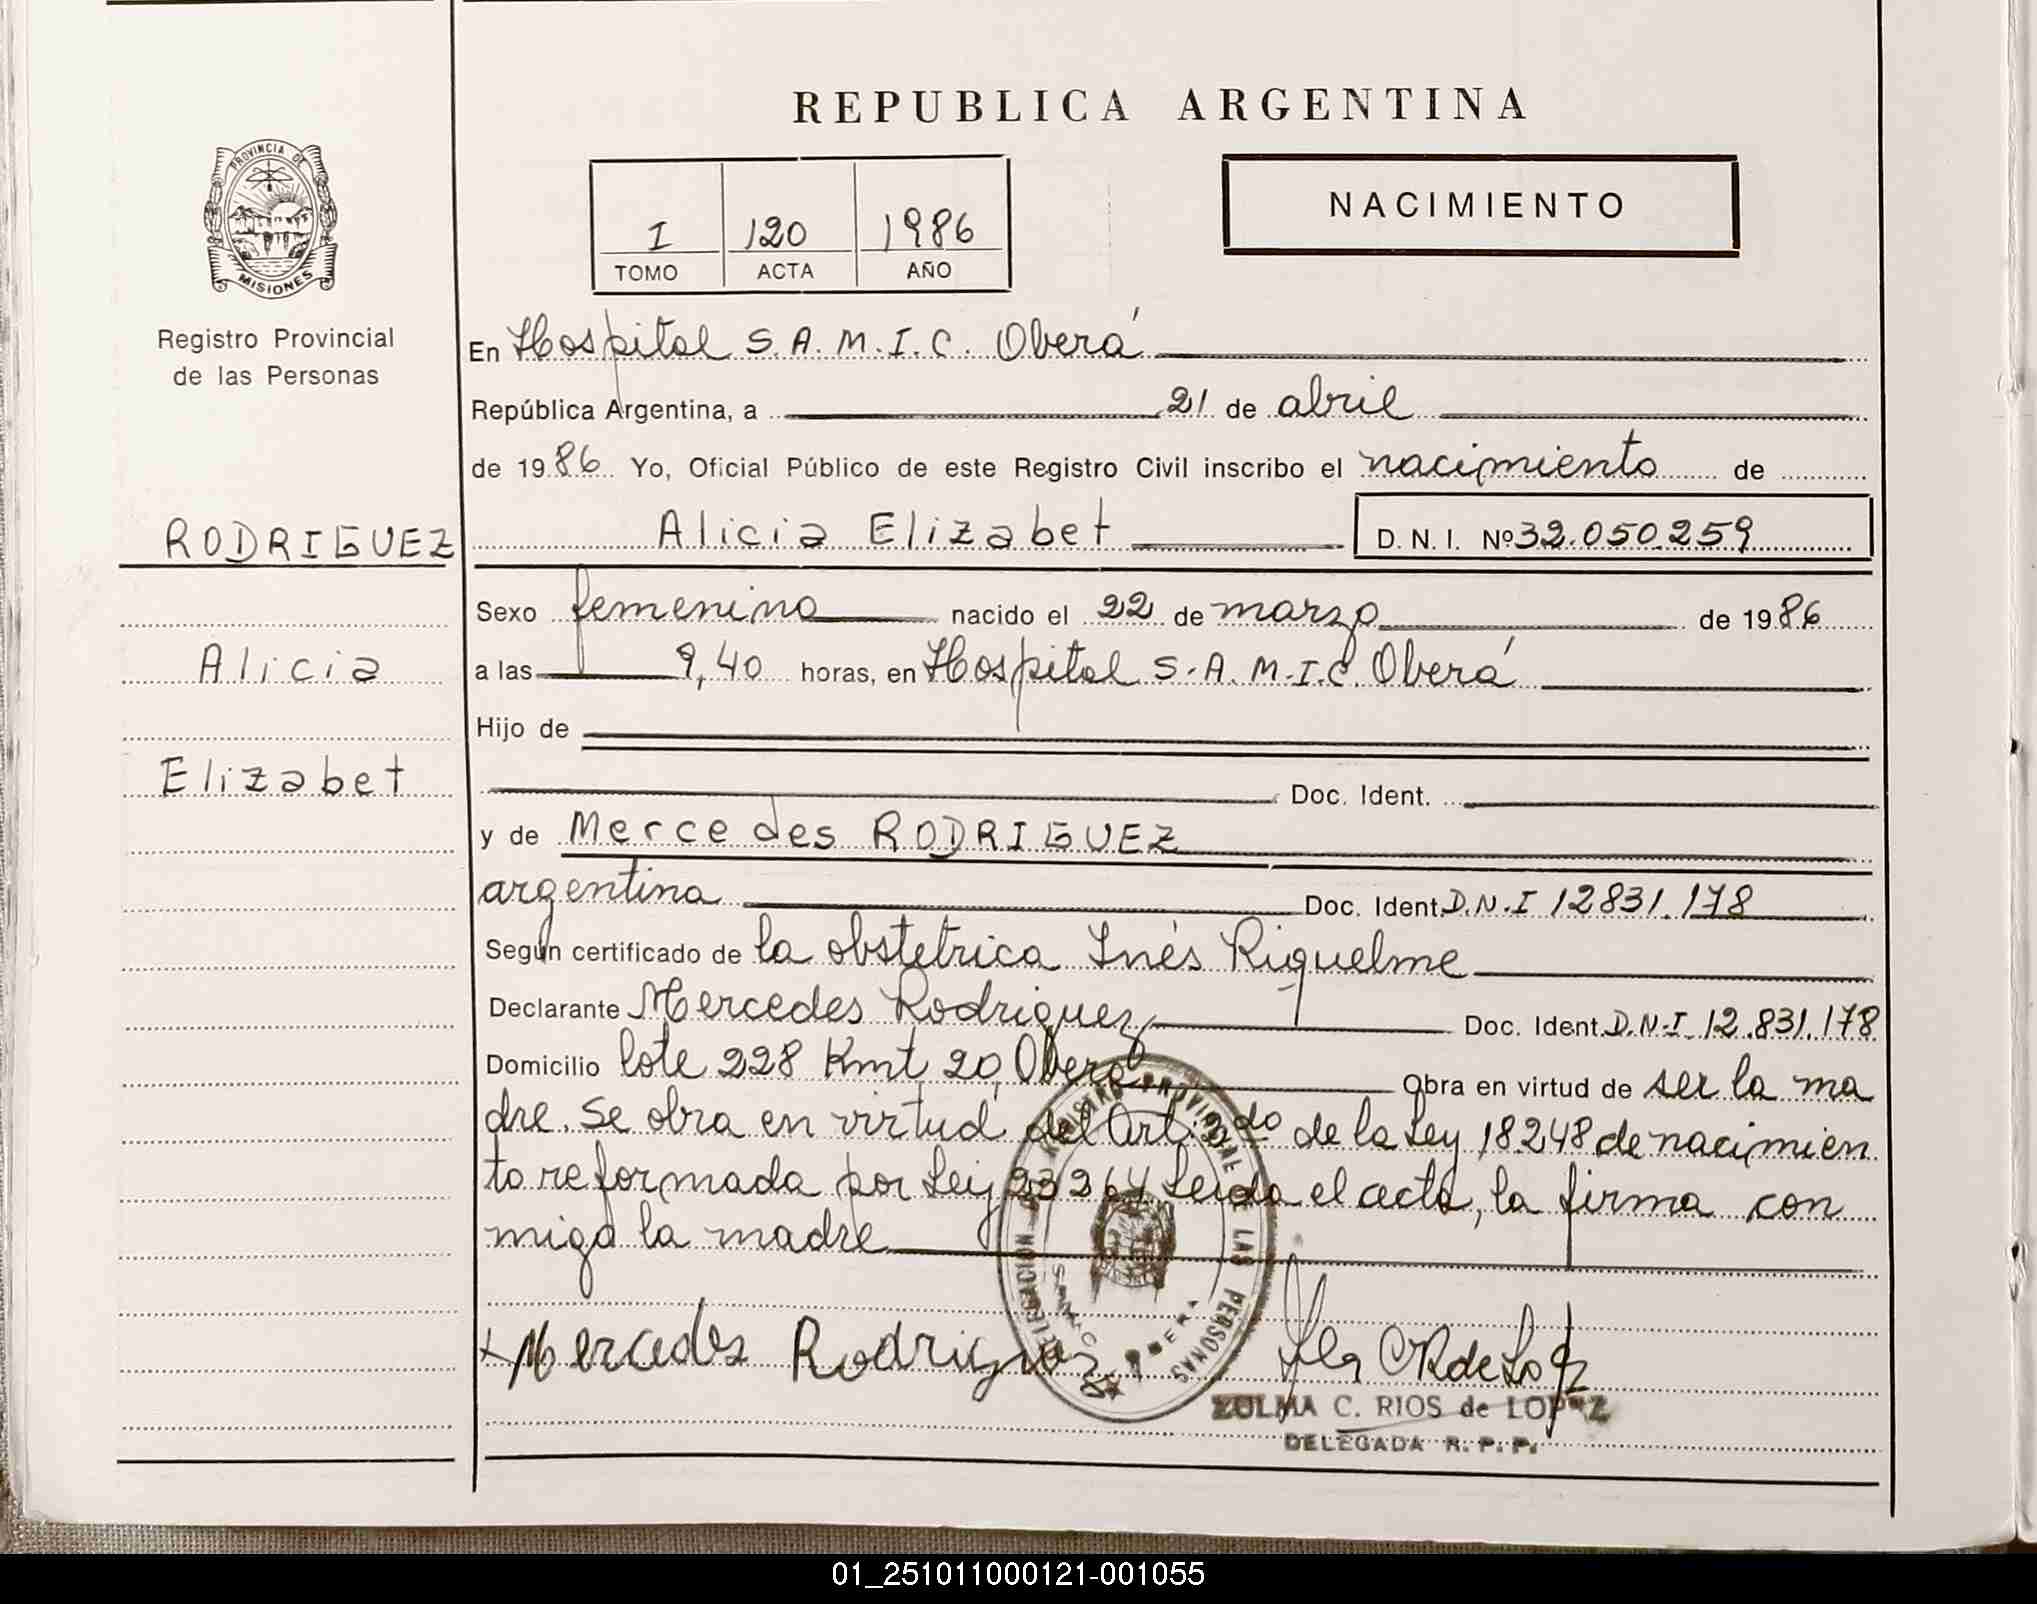 REPUBLICA ARGENTINA
PROVINCIA DE
MISIONES
Registro Provincial
de las Personas
I 120 1986
TOMO ACTA AÑO
NACIMIENTO
En Hospital S.A.M.I.C. Oberá
República Argentina, a 21 de abril
de 1986 Yo, Oficial Público de este Registro Civil inscribo el nacimiento de
RODRIGUEZ
Alicia Elizabet D.N.I. Nº 32.050.259
Sexo femenino nacido el 22 de marzo de 1986
Alicia
a las 9,40 horas, en Hospital S.A.M.I.C. Oberá
Hijo de
Elizabet
Doc. Ident.
y de Mercedes RODRIGUEZ
argentina Doc. Ident. D.N.I 12831.178
Según certificado de la obstetrica Inés Riquelme
Declarante Mercedes Rodriguez Doc. Ident. D.N.I. 12.831.178
Domicilio lote 228 Kmt 20, Oberá Obra en virtud de ser la ma
dre. Se obra en virtud del Art. do de la Ley 18248 de nacimien
to reformada por Ley 23264 Leida el acta, la firma con
migo la madre
DELEGACION REGISTRO PROVINCIAL DE LAS PERSONAS
OBERA
Mercedes Rodriguez
ZULMA C. RIOS de LOPEZ
DELEGADA R. P. P.
01_251011000121-001055